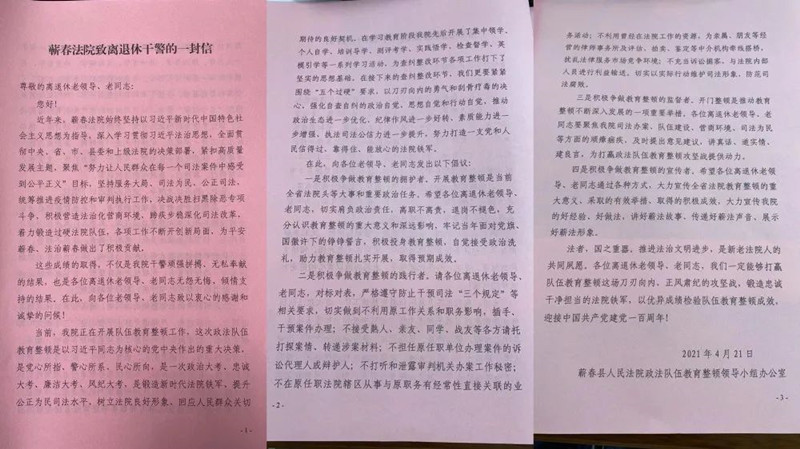 蕲春法院致离退休干警的一封信
尊敬的离退休老领导、老同志：
您好！
近年来，蕲春法院始终坚持以习近平新时代中国特色社
会主义思想为指导，深入学习贯彻习近平法治思想，全面贯
彻中央、省、市、县委和上级法院的决策部署，紧扣高质量
发展主题，聚焦“努力让人民群众在每一个司法案件中感受
到公平正义”目标，坚持服务大局、司法为民、公正司法，
统筹推进疫情防控和审判执行工作，决战决胜扫黑除恶专项
斗争，积极营造法治化营商环境，蹄疾步稳深化司法改革，
着力锻造过硬法院队伍，各项工作不断开创新局面，为平安
蕲春、法治蕲春做出了积极贡献。
这些成绩的取得，不仅是我院干警顽强拼搏、无私奉献
的结果，也是各位离退休老领导、老同志无怨无悔、倾情支
持的结果。在此，向各位老领导、老同志致以衷心的感谢和
诚挚的问候！
当前，我院正在开展队伍教育整顿工作，这次政法队伍
教育整顿是以习近平同志为核心的党中央作出的重大决策，
是党心所指、警心所系、民心所向，是一次政治大考、忠诚
大考、廉洁大考、风纪大考，是锻造新时代法院铁军，提升
公正为民司法水平，树立法院良好形象，回应人民群众关切
-1-
期待的良好契机。在学习教育阶段我院先后开展了集中领学、
个人自学、培训导学、测评考学、实践悟学、检查督学、英
模引学等一系列学习活动，为查纠整改环节各项工作打下了
坚实的思想基础。在接下来的查纠整改环节，我们更要紧紧
围绕“五个过硬”要求，以刀刃向内的勇气和刮骨疗毒的决
心，强化自查自纠的政治自觉、思想自觉和行动自觉，推动
政治生态进一步优化、纪律作风进一步好转、素质能力进一
步增强、执法司法公信力进一步提升，努力打造一支党和人
民信得过、靠得住、能放心的法院铁军。
在此，向各位老领导、老同志发出以下倡议：
一是积极争做教育整顿的拥护者。开展教育整顿是当前
全省法院头等大事和重要政治任务。希望各位离退休老领导、
老同志，切实肩负政治责任，离职不离责，退岗不褪色，充
分认识教育整顿的重大意义和深远影响，牢记当年面对党旗、
国徽许下的铮铮誓言，积极投身教育整顿，自觉接受政治洗
礼，助力教育整顿扎实开展，取得预期成效。
二是积极争做教育整顿的践行者。请各位离退休老领导、
老同志，对标对表，严格遵守防止干预司法“三个规定”等
相关要求，切实做到不利用原工作关系和职务影响，插手、
干预案件办理；不接受熟人、亲友、同学、战友等各方请托
打探案情、转递涉案材料；不担任原任职单位办理案件的诉
讼代理人或辩护人；不打听和泄露审判机关办案工作秘密；
不在原任职法院辖区从事与原职务有经常性直接关联的业
-2-
务活动；不利用曾经在法院工作的资源，为亲属、朋友等经
营的律师事务所及评估、拍卖、鉴定等中介机构牵线搭桥，
扰乱法律服务市场竞争环境；不充当诉讼掮客，与法院内部
人员进行利益输送。切实以实际行动维护司法形象，防范司
法腐败。
三是积极争做教育整顿的监督者。开门整顿是推动教育
整顿不断深入发展的一项重要举措。各位离退休老领导、老
同志要聚焦我院司法办案、队伍建设、营商环境、司法为民
等方面的顽瘴痼疾，及时提出意见建议，讲真话、道实情、
建良言，为打赢政法队伍教育整顿攻坚战提供动力。
四是积极争做教育整顿的宣传者。希望各位离退休老领
导、老同志通过各种方式，大力宣传全省法院教育整顿的重
大意义、采取的有效举措、取得的积极成效，大力宣传我院
的好经验、好做法，讲好蕲法故事、传递好蕲法声音、展示
好蕲法形象。
法者，国之重器。推进法治文明进步，是新老法院人的
共同夙愿。各位离退休老领导、老同志，我们一定能够打赢
队伍教育整顿这场刀刃向内、正风肃纪的攻坚战，锻造忠诚
干净担当的法院铁军，以优异成绩检验队伍教育整顿成效，
迎接中国共产党建党一百周年！
2021年4月21日
蕲春县人民法院政法队伍教育整顿领导小组办公室
-3-